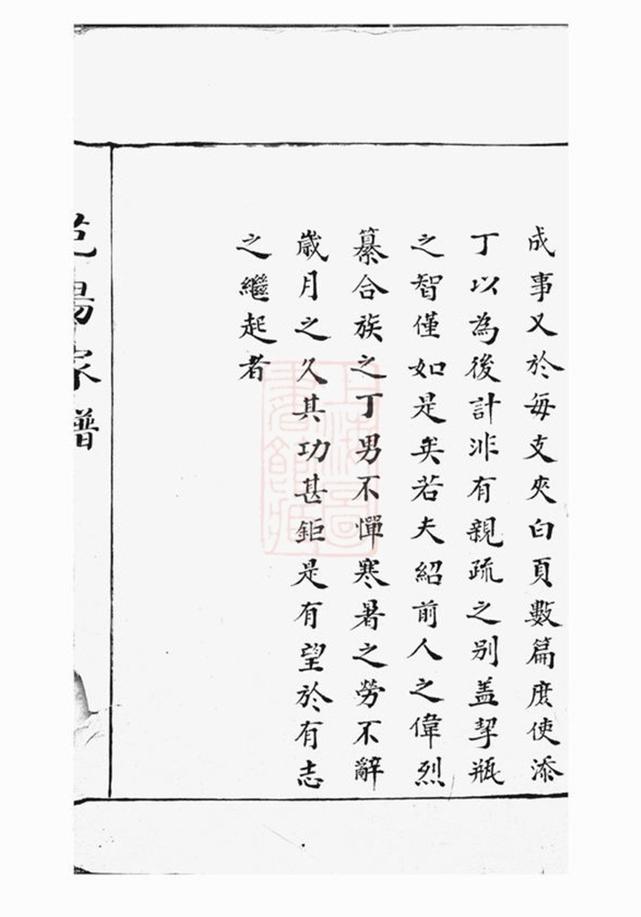 成事又於每支夾白頁數篇庶使添
丁以為後計非有親疏之别盖挈瓶
之智僅如是矣若夫紹前人之偉烈
纂合族之丁男不憚寒暑之勞不辭
歲月之久其功甚鉅是有望於有志
之繼起者
陽家譜
上海圖書館藏